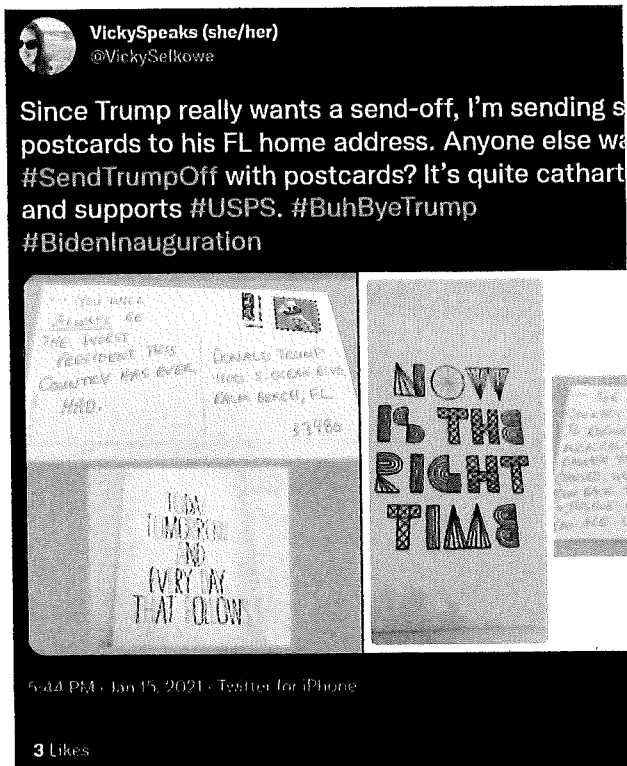 VickySpeaks (she/her)
@VickySelkowe
Since Trump really wants a send-off, I'm sending s
postcards to his FL home address. Anyone else wa
#SendTrumpOff with postcards? It's quite cathart
and supports #USPS. #BuhByeTrump
#BidenInauguration
YOU WILL
ALWAYS BE
THE WORST
PRESIDENT THIS
COUNTRY HAS EVER
HAD.
DONALD TRUMP
1100 S. OCEAN BLVD
PALM BEACH, FL
33480
TODAY
TOMORROW
AND
EVERY DAY
THAT FOLLOWS
NOW
IS THE
RIGHT
TIME
5:44 PM · Jan 15, 2021 · Twitter for iPhone
3 Likes